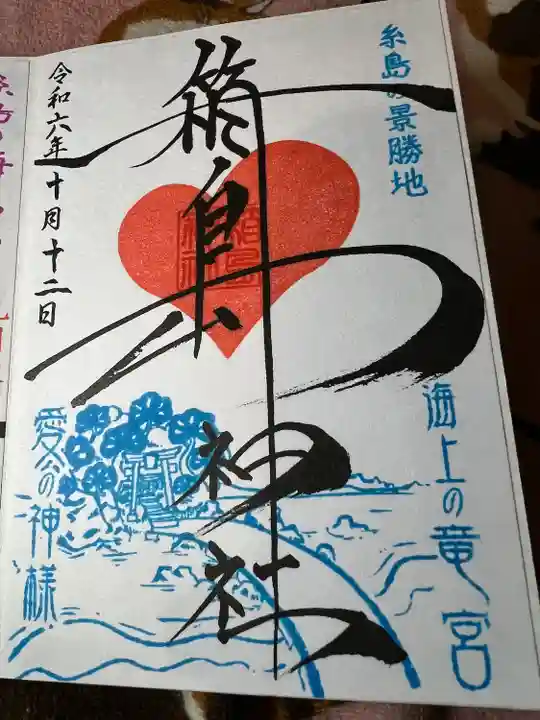 糸島の景勝地
海上の竜宮
箱島神社
箱島
神社
令和六年十月十二日
愛の神様